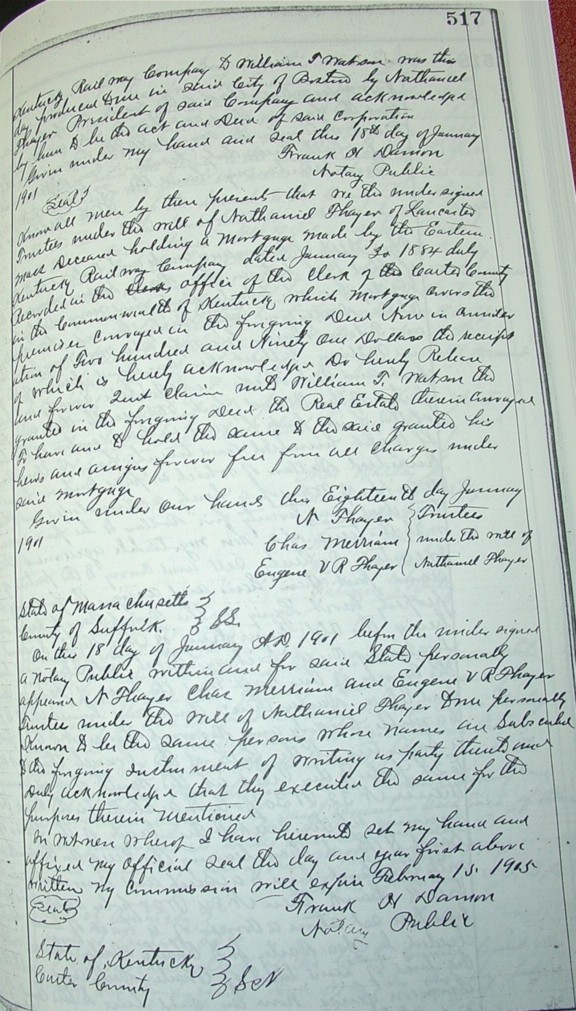 517
Kentucky Railway Company to William T Watson was this
day produced to me in said City of Boston by Nathaniel
Thayer President of said Company and acknowledged
by him to be the act and Deed of said corporation
Given under my hand and seal this 18th day of January
1901 Frank H Damon
Seal Notary Public
Know all men by these presents that we the undersigned
Trustees under the will of Nathaniel Thayer of Lancaster
Mass Deceased holding a Mortgage made by the Eastern
Kentucky Railway Company dated January 20 1884 duly
Recorded in the office of the Clerk of the Carter County
in the Commonwealth of Kentucky which Mortgage covers the
premises conveyed in the forgoing Deed Now in consider
ation of Two hundred and Ninety One Dollars the receipt
of which is hereby acknowledged Do hereby Release
and forever Quit Claim unto William T. Watson the
grantee in the forgoing Deed the Real Estate therein conveyed
To have and to hold the same to the said granted his
heirs and assigns forever free from all charges under
said mortgage
Given under our hands this Eighteenth day January
1901 N Thayer Trustees
Chas Merriam under the will of
Eugene V R Thayer Nathaniel Thayer
State of Massachusetts
County of Suffolk SS.
On this 18 day of January A.D. 1901 before the undersigned
a Notary Public within and for said State personally
appeared N Thayer Chas Merriam and Eugene V R Thayer
Trustee under the will of Nathaniel Thayer to me personally
Known to be the same persons whose names are Subscribed
to the forgoing Instrument of writing as party thereto and
Duly acknowledged that they executed the same for the
purposes therein Mentioned
In witness whereof I have hereunto set my hand and
affixed my official seal the day and year first above
written My Commission will expire February 15. 1905
Seal Frank H Damon
Notary Public
State of Kentucky
Carter County Sct